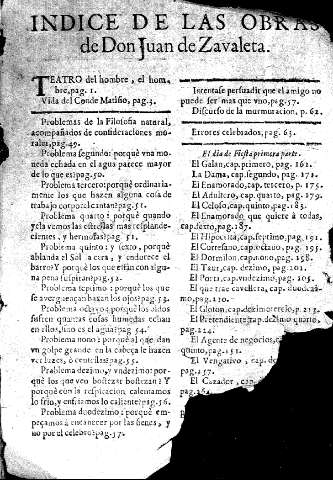 INDICE DE LAS OBRAS
de Don Juan de Zavaleta.
TEATRO del hombre, el hom-
bre, pag. 1.
Vida del Conde Matisio, pag.3.
Problemas de la Filosofia natural,
acompañados de consideraciones mo-
rales, pag.49.
Problema segundo: porquè vna mo-
neda echada en el agua parece mayor
de lo que es? pag.50.
Problema tercero: porquè ordinaria-
mente los que hazen alguna cosa de
trabajo corporal cantan? pag.51.
Problema quarto: porquè quando
yela vemos las estrellas mas resplande-
cientes, y hermosas? pag.51.
Problema quinto: y sexto, porquè
ablanda el Sol la cera, y endurece el
barro? Y porquè los que estàn con algu-
na pena suspiran? pag.52.
Problema septimo: porquè los que
se averguençan baxan los ojos? pag.53.
Problema octavo: porquè los oidos
sufren quantas cosas humedas echan
en ellos, sino es el agua? pag.54.
Problema nono: porquè al que dan
vn golpe grande en la cabeça le hazen
ver luzes, ò centellas? pag.55.
Problema dezimo, y vndezimo: por-
què los que ven bostezar bostezan? Y
porquè con la respiracion calentamos
lo frio, y enfriamos lo caliente? pag.56.
Problema duodezimo: porquè em-
peçamos à encanecer por las sienes, y
no por el celebro? pag.57.
Intentase persuadir que el amigo no
puede ser mas que vno, pag.57.
Discurso de la murmuracion, p. 62.
Errores celebrados, pag. 63.
El dia de Fiesta primera parte.
El Galan, cap. primero, pag. 162.
La Dama, cap. segundo, pag. 172.
El Enamorado, cap. tercero, p. 175.
El Adultero, cap. quarto, pag. 179.
El Celoso, cap. quinto, pag. 183.
El Enamorado que quiere à todas,
cap. sexto, pag.187.
El Hipocrita, cap. septimo, pag. 191.
El Cortesano, cap. octavo, pag. 195.
El Dormilon, cap. nono, pag. 198.
El Taur, cap. dezimo, pag. 201.
El Poeta, cap. vndezimo, pag. 205.
El que trae cavallera, cap. duodezi-
mo, pag.210.
El Gloton, cap. dezimotercio, p. 213.
El Pretendiente, cap. dezimo quarto,
pag.224.
El Agente de negocios, c
quinto, pag.
El Vengativo, cap. d
pag.
El Cazador, cap. d
pag.